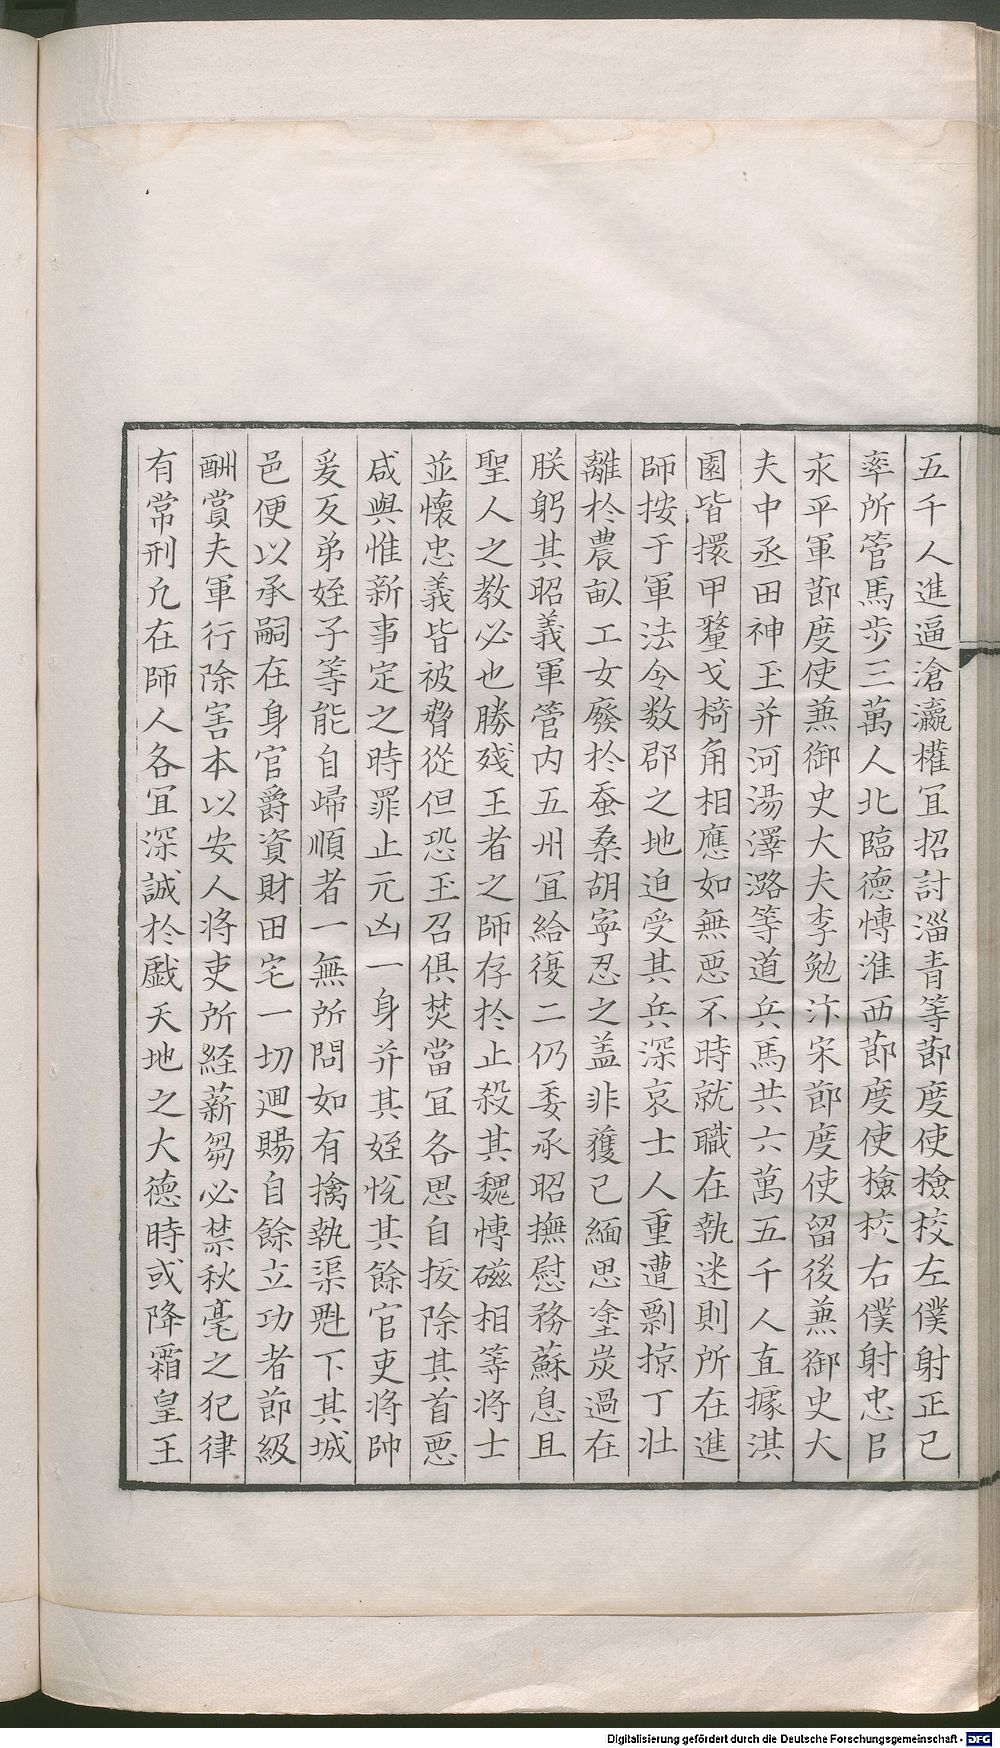 五千人進逼滄瀛權冝招討淄青等節度使檢校左僕射正己
率所管馬步三萬人北臨德愽淮西節度使檢校右僕射忠臣
永平軍節度使兼御史大夫李勉汴宋節度使留後兼御史大
夫中丞田神玉并河湯澤潞等道兵馬共六萬五千人直據淇
園皆擐甲鼛戈𣔌角相應如無惡不時就職在執迷則所在進
師按于軍法令数郡之地迫受其兵深哀士人重遭剽掠丁壯
離扵農畝工女廢扵蚕桑胡寧忍之盖非獲已緬思塗炭過在
朕躬其昭義軍管内五州冝給復二仍委承昭撫慰務蘇息且
聖人之教必也勝殘王者之師存扵止殺其魏愽磁相等將士
並懷忠義皆被脅從但恐玉召俱焚當冝各思自拔除其首惡
咸與惟新事定之時罪止元凶一身并其姪悅其餘官吏將帥
爰及弟姪子等能自歸順者一無所問如有擒執渠魁下其城
邑便以承嗣在身官爵資財田宅一切廻賜自餘立功者節級
酬賞夫軍行除害本以安人將吏所経薪芻必禁秋毫之犯律
有常刑凢在師人各冝深誠扵戲天地之大德時或降霜皇王
Digitalisierung gefördert durch die Deutsche Forschungsgemeinschaft - DFG